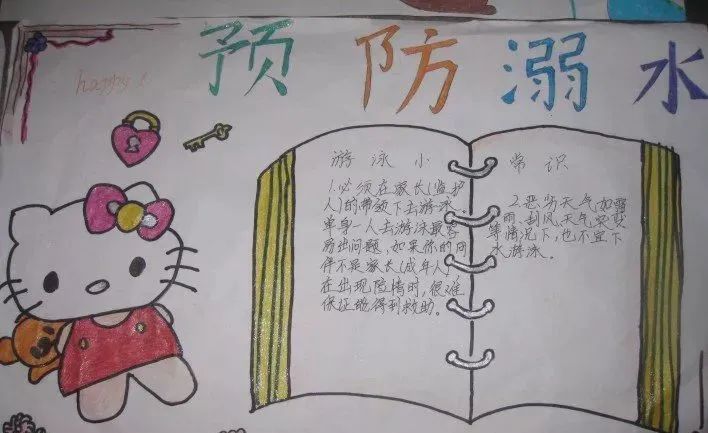 预防溺水
happy
游泳小常识
1.必须在家长(监护
人)的带领下去游泳。
单身一人去游泳最容
易出问题,如果你的同
伴不是家长(成年人)
在出现险情时,很难
保证能得到救助。
2.恶劣天气如雷
雨、刮风、天气突变
等情况下,也不宜下
水游泳。